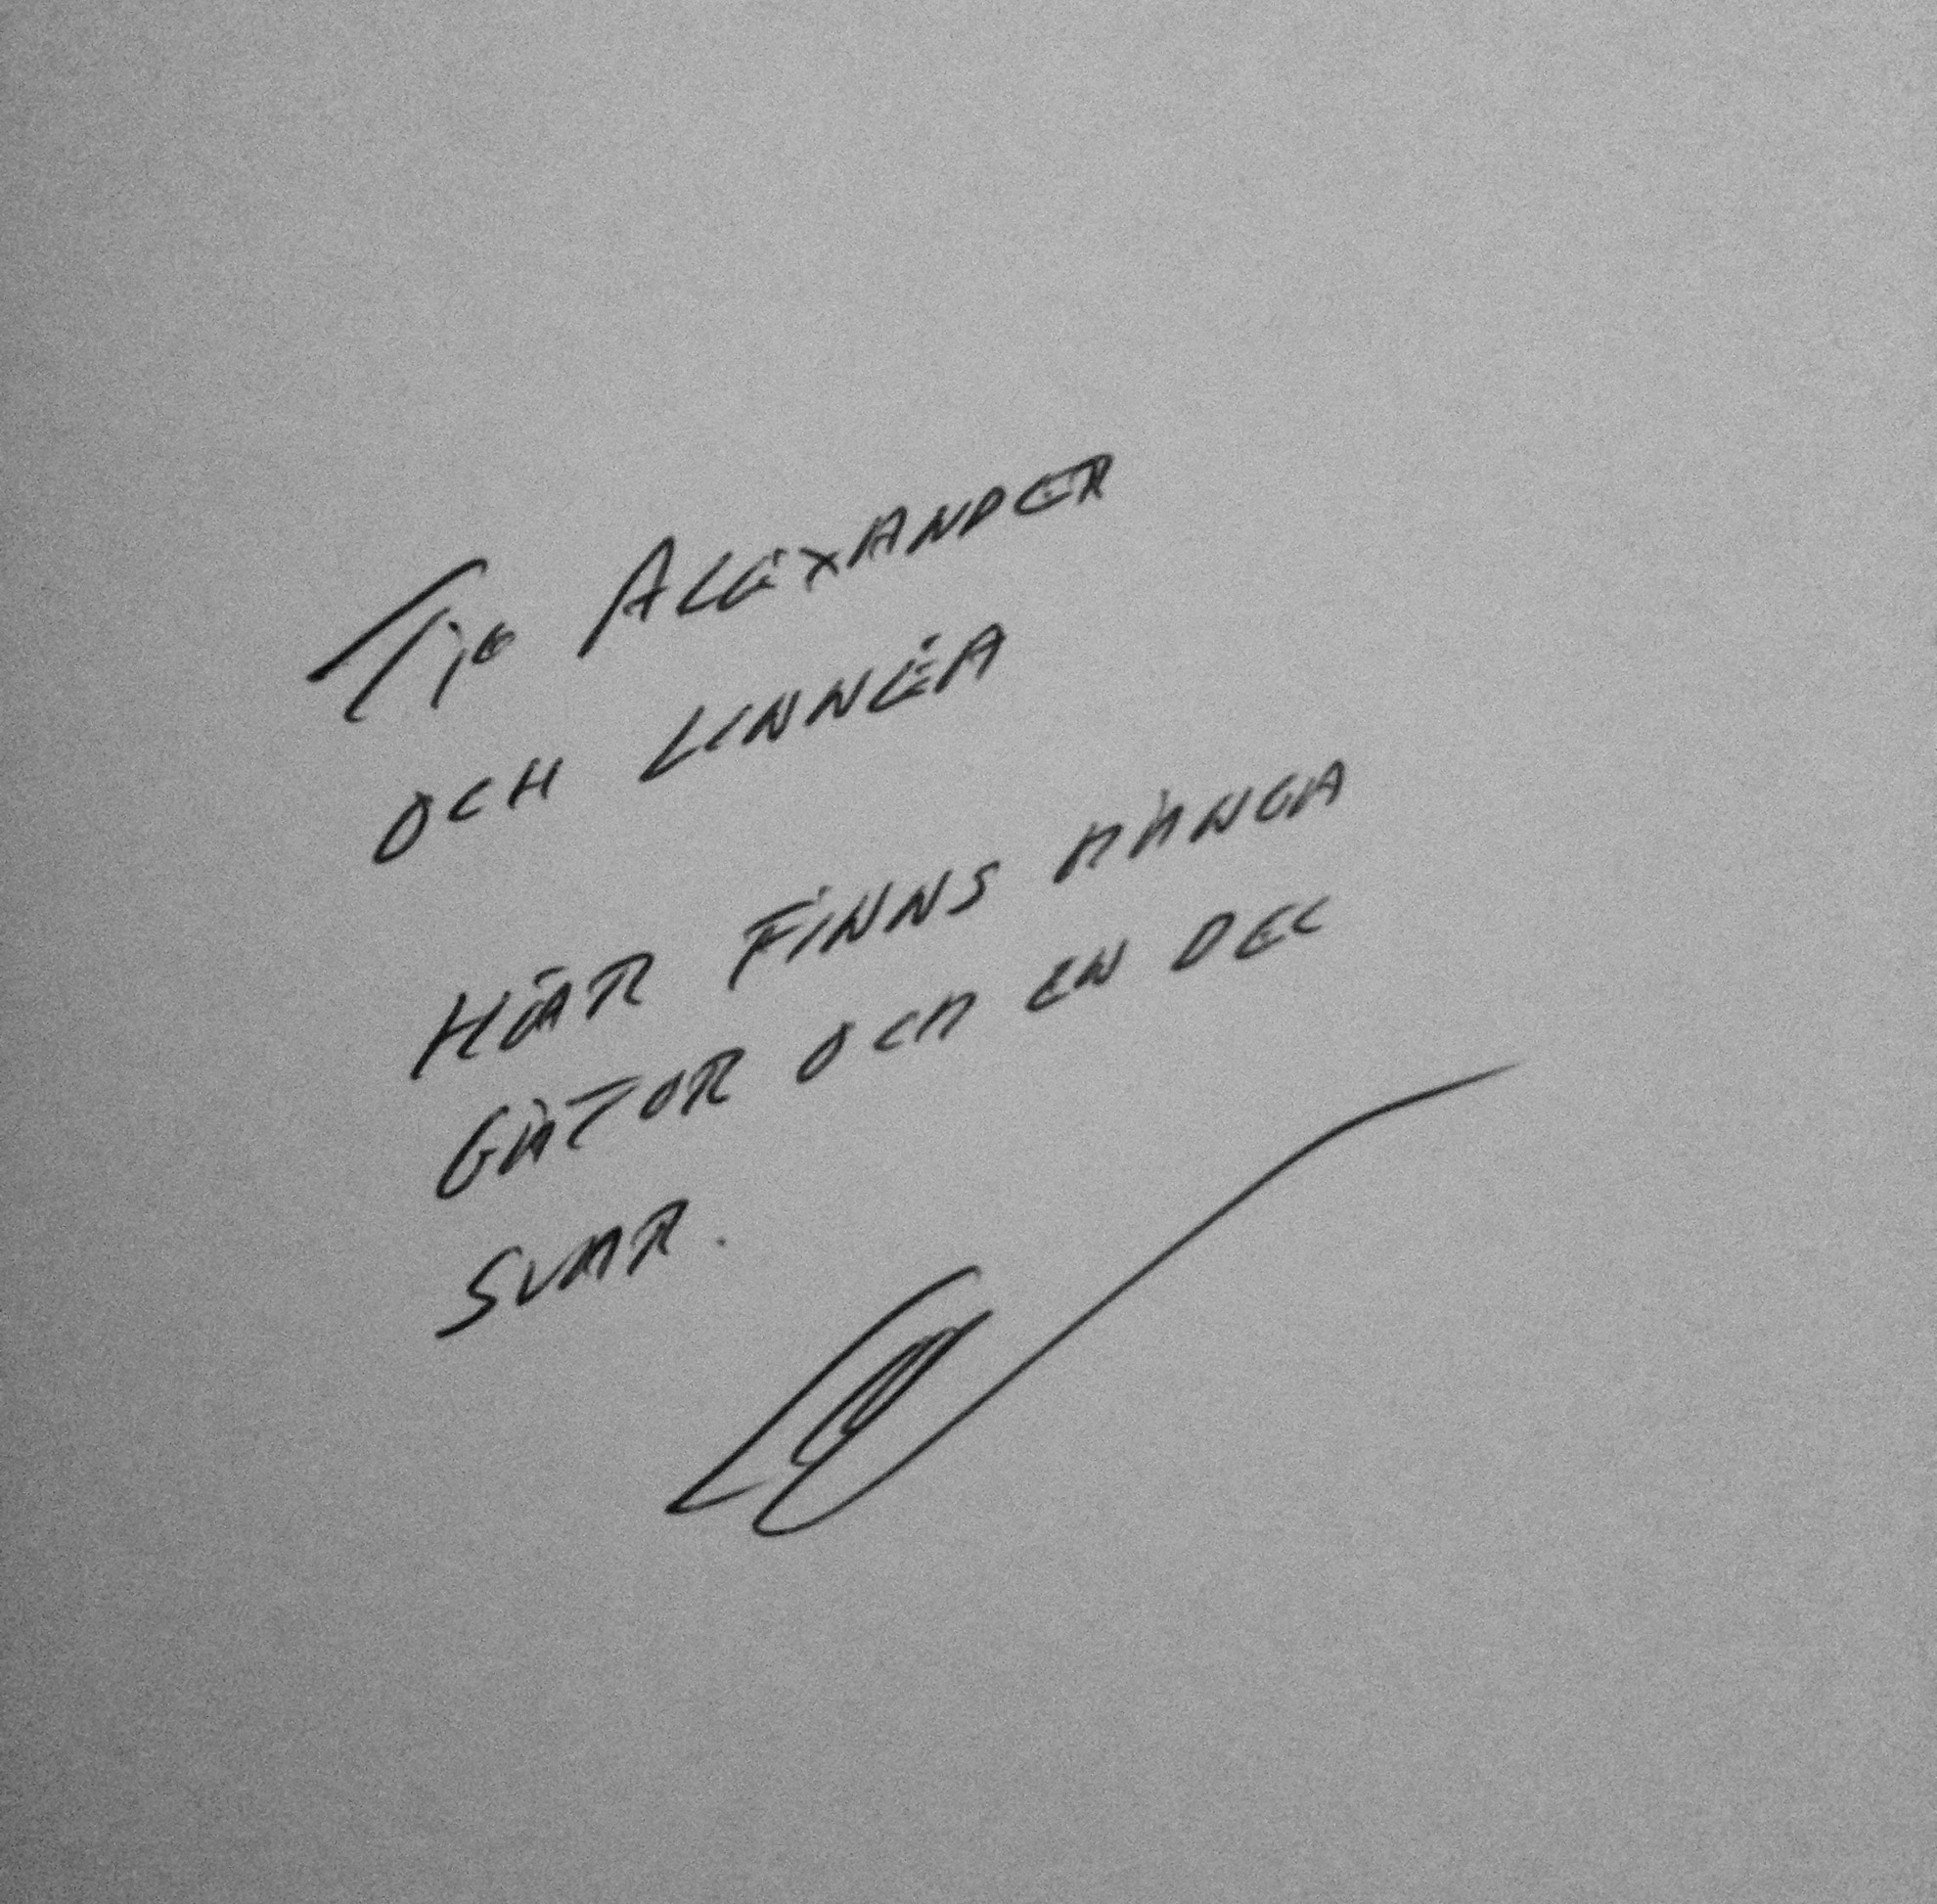 Till ALEXANDER
OCH LINNÉA
HÄR FINNS MÅNGA
GÅTOR OCH EN DEL
SVAR.